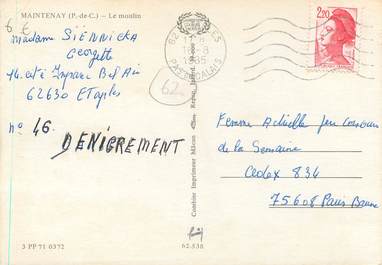 MAINTENAY (P.-de-C.) - Le moulin
6 €
Madame SIENNICKA
Georgette
14. cité Bel Air
62630 ETaples
n° 46.
DENIGREMENT
62
PAS DE CALAIS
1985
2,20
Combier Imprimeur Mâcon
Femme Actuelle jeu concours
de la Semaine
Cedex 834
75608 Paris Brune
3 PP 71 0372
62-538